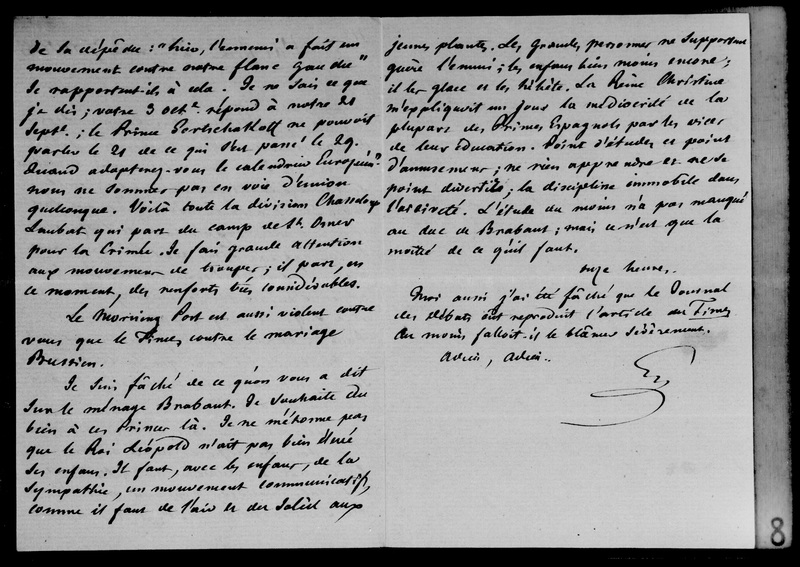 de la dépêche : "hier, l'ennemi a fait un
mouvement contre notre flanc gauche"
se rapportent-ils à cela. Je ne sais ce que
je dis ; votre 3 octe répond à notre 21
Septe ; le Prince Gortschakoff ne pouvoit
parler le 21 de ce qui s'est passé le 29.
Quand adopterez-vous le calendrier Européen"
nous ne sommes pas en voie d'union
quelconque. Voilà toute la division Chasseloup
Laubat qui part du camp de St. Omer
pour la Crimée. Je fais grande attention
aux mouvemens de troupes ; il part, en
ce moment, des renforts très considérables.
Le Morning Post est aussi violent contre
vous que le Times contre le mariage
Prussien.
Je suis fâché de ce qu'on vous a dit
sur le ménage Brabant. Je souhaite du
bien à ces Princes là. Je ne m'étonne pas
que le Roi Léopold n'ait pas bien élevé
ses enfans. Il faut, avec les enfans, de la
sympathie, un mouvement communicatif,
comme il faut de l'air et du soleil aux
jeunes plantes. Les grandes personnes ne supportent
guère l'ennui ; les enfans bien moins encore ;
il les glace et les hébète. La Reine Christine
m'expliquoit un jour la médiocrité de la
plupart des Princes Espagnols par les vices
de leur éducation. Point d'études et point
d'amusemens ; ne rien apprendre et ne se
point divertir ; la discipline immobile dans
l'oisiveté. L'étude du moins n'a pas manqué
au duc de Brabant ; mais ce n'est que la
moitié de ce qu'il faut.
onze heures.
Moi aussi j'ai été fâché que le Journal
des débats eût reproduit l'article du Times
Au moins falloit-il le blâmer sévèrement.
Adieu, adieu.
8